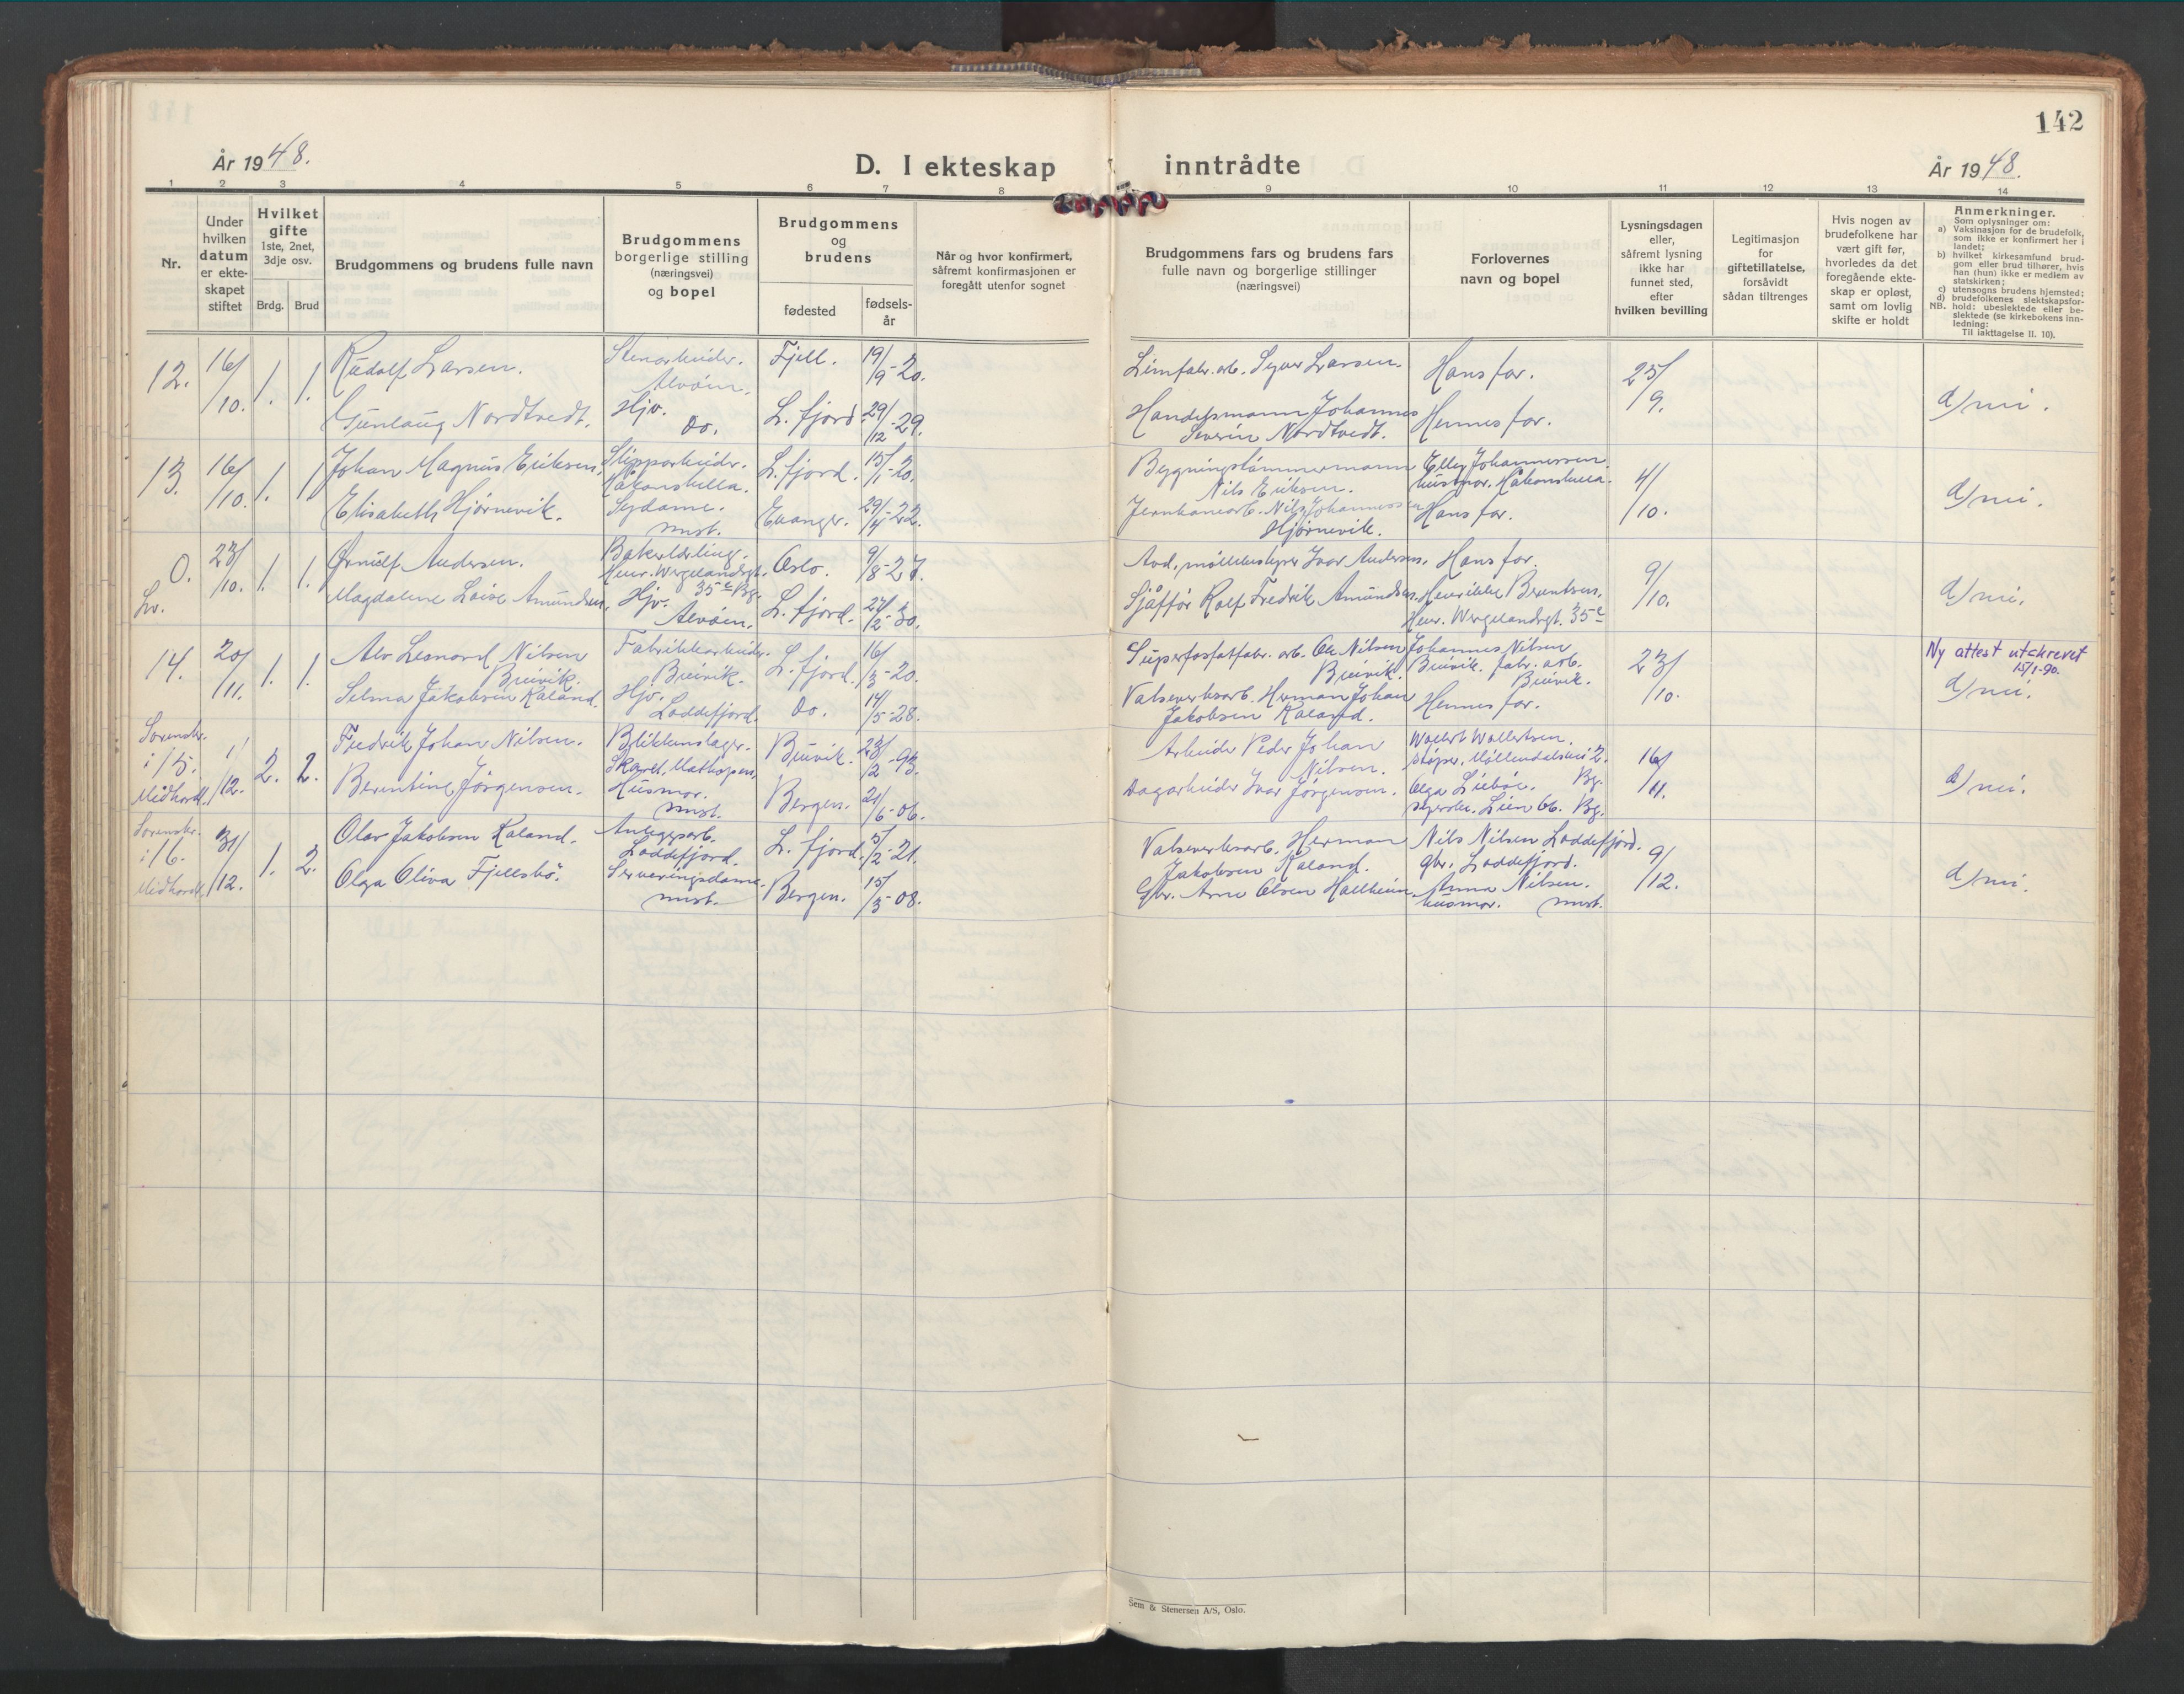 142
År 1948.
D. I ekteskap inntrådte
År 1948.
1 2 3 4 5 6 7 8 9 10 11 12 13 14
Nr.
Under hvilken datum er ekteskapet stiftet
Hvilket gifte
1ste, 2net, 3dje osv.
Brdg. Brud
Brudgommens og brudens fulle navn
Brudgommens borgerlige stilling (næringsvei) og bopel
Brudgommens og brudens
fødested
fødsels-år
Når og hvor konfirmert, såfremt konfirmasjonen er foregått utenfor sognet
Brudgommens fars og brudens fars fulle navn og borgerlige stillinger (næringsvei)
Forlovernes navn og bopel
Lysningsdagen eller, såfremt lysning ikke har funnet sted, efter hvilken bevilling
Legitimasjon for giftetillatelse, forsåvidt sådan tiltrenges
Hvis nogen av brudefolkene har vært gift før, hvorledes da det foregående ekteskap er opløst, samt om lovlig skifte er holdt
Anmerkninger.
Som oplysninger om:
a) Vaksinasjon for de brudefolk, som ikke er konfirmert her i landet;
b) hvilket kirkesamfund brudgom eller brud tilhører, hvis han (hun) ikke er medlem av statskirken;
c) utensogns brudens hjemsted;
d) brudefolkenes slektskapsforhold: ubeslektede eller beslektede (se kirkebokens innledning:
NB. Til iakttagelse II. 10).
12. 16/10. 1. 1. Rudolf Larsen. Stenarbeider. Alvøin. Fjell. 19/9-20. Limfabr. arb. Syver Larsen. Hans far. 25/9. d) nei.
Gunlaug Nordtvedt. Hjv. do. L. fjord. 29/12-29. Handelsmann Johannes Severin Nordtvedt. Hennes far.
13. 16/10. 1. 1 Johan Magnus Eriksen, Slipparbeider. Håkonshella. L. fjord. 15/1-20. Bygningstømmermann Nils Eriksen. Elley Johannessen. husmor. Håkonshella. 4/10. d) nei
Elisabeth Hjørnevik. Sydame. smst. Evanger. 29/4-22. Jernbanearb. Nils Johannessen Hjørnevik. Hans far.
0. Lv. 23/10. 1. 1. Ørnulf Andersen. Bakerlærling. Henr. Wergelandsgt. 35 c Bg. Oslo. 9/8-27. Avd. møllebestyrer Ivar Andersen. Hans far. 9/10. d) nei.
Magdalene Loise Amundsen, Hjv. Alvøin. L. fjord. 27/2-30. Sjåffør Rolf Fredrik Amundsen. Henrikke Berentsen. Henr. Wergelandsgt. 35 c
14. 20/11. 1. 1. Alv Leonard Nilsen Breivik. Fabrikkarbeider. Breivik. L. fjord. 16/3-20. Superfosfatfabr. arb. Ole Nilsen Breivik. Johannes Nilsen Breivik. fabr. arb. Breivik. 23/10. Ny attest utskrevet 15/1-90.
Selma Jakobsen Kaland. Hjv. Loddefjord. do. 14/5-28. Valseverksarb. Herman Johan Jakobsen Kaland. Hennes far. d) nei.
Sorenskr. i 15. Midhordl. 1/12. 2. 2. Fredrik Johan Nilsen. Blikkenslager. Skaret, Mathopen. Breivik. 23/2-93. Arbeider Peder Johan Nilsen. Wollert Wollertsen. støper. Møllendalsvei 2. Bg. 16/11. d) nei.
Berentine Jørgensen. Husmor. smst. Bergen. 21/6-06. Dagarbeider Ivar Jørgensen. Olga
Sorenskr. i 16. Midhordl. 31/12. 1. 2. Olav Jakobsen Kaland. Anleggsarb. Loddefjord. L. fjord. 5/2-21. Valseverksarb. Herman Jakobsen Kaland. Nils Nilsen Loddefjord. gbr. Loddefjord. 9/12. d) nei.
Olga Oliva Fjellsbø. Serveringsdame. smst. Bergen. 15/3-08. Gbr. Arne Olsen Anna Nilsen. husmor. smst.
Sem & Stenersen A/S, Oslo.